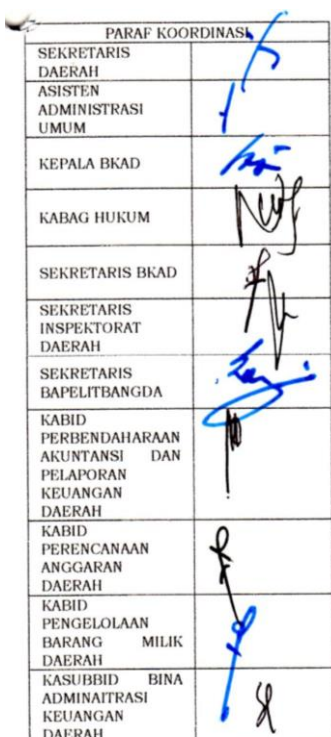 PARAF KOORDINASI
SEKRETARIS
DAERAH
ASISTEN
ADMINISTRASI
UMUM
KEPALA BKAD
KABAG HUKUM
SEKRETARIS BKAD
SEKRETARIS
INSPEKTORAT
DAERAH
SEKRETARIS
BAPELITBANGDA
KABID
PERBENDAHARAAN
AKUNTANSI DAN
PELAPORAN
KEUANGAN
DAERAH
KABID
PERENCANAAN
ANGGARAN
DAERAH
KABID
PENGELOLAAN
BARANG MILIK
DAERAH
KASUBBID BINA
ADMINAITRASI
KEUANGAN
DAERAH